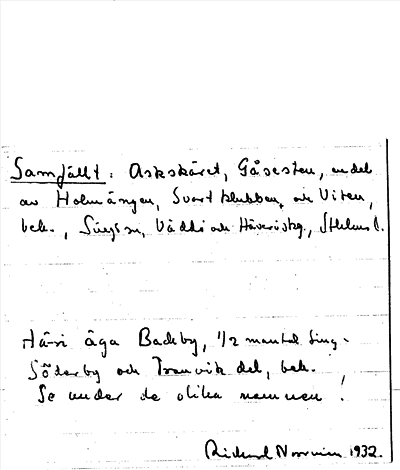 Samfällt: Askskäret, Gåsesten, en del
av Holmängen, Svartklubben, och Viten,
bek., Singsn, Väddö och Häverö skg., Sthlms l.
Häri äga Backby, 1/2 mantal Sing-
Söderby och Tranvik del, bek.
Se under de olika namnen!
Rickard 1932.